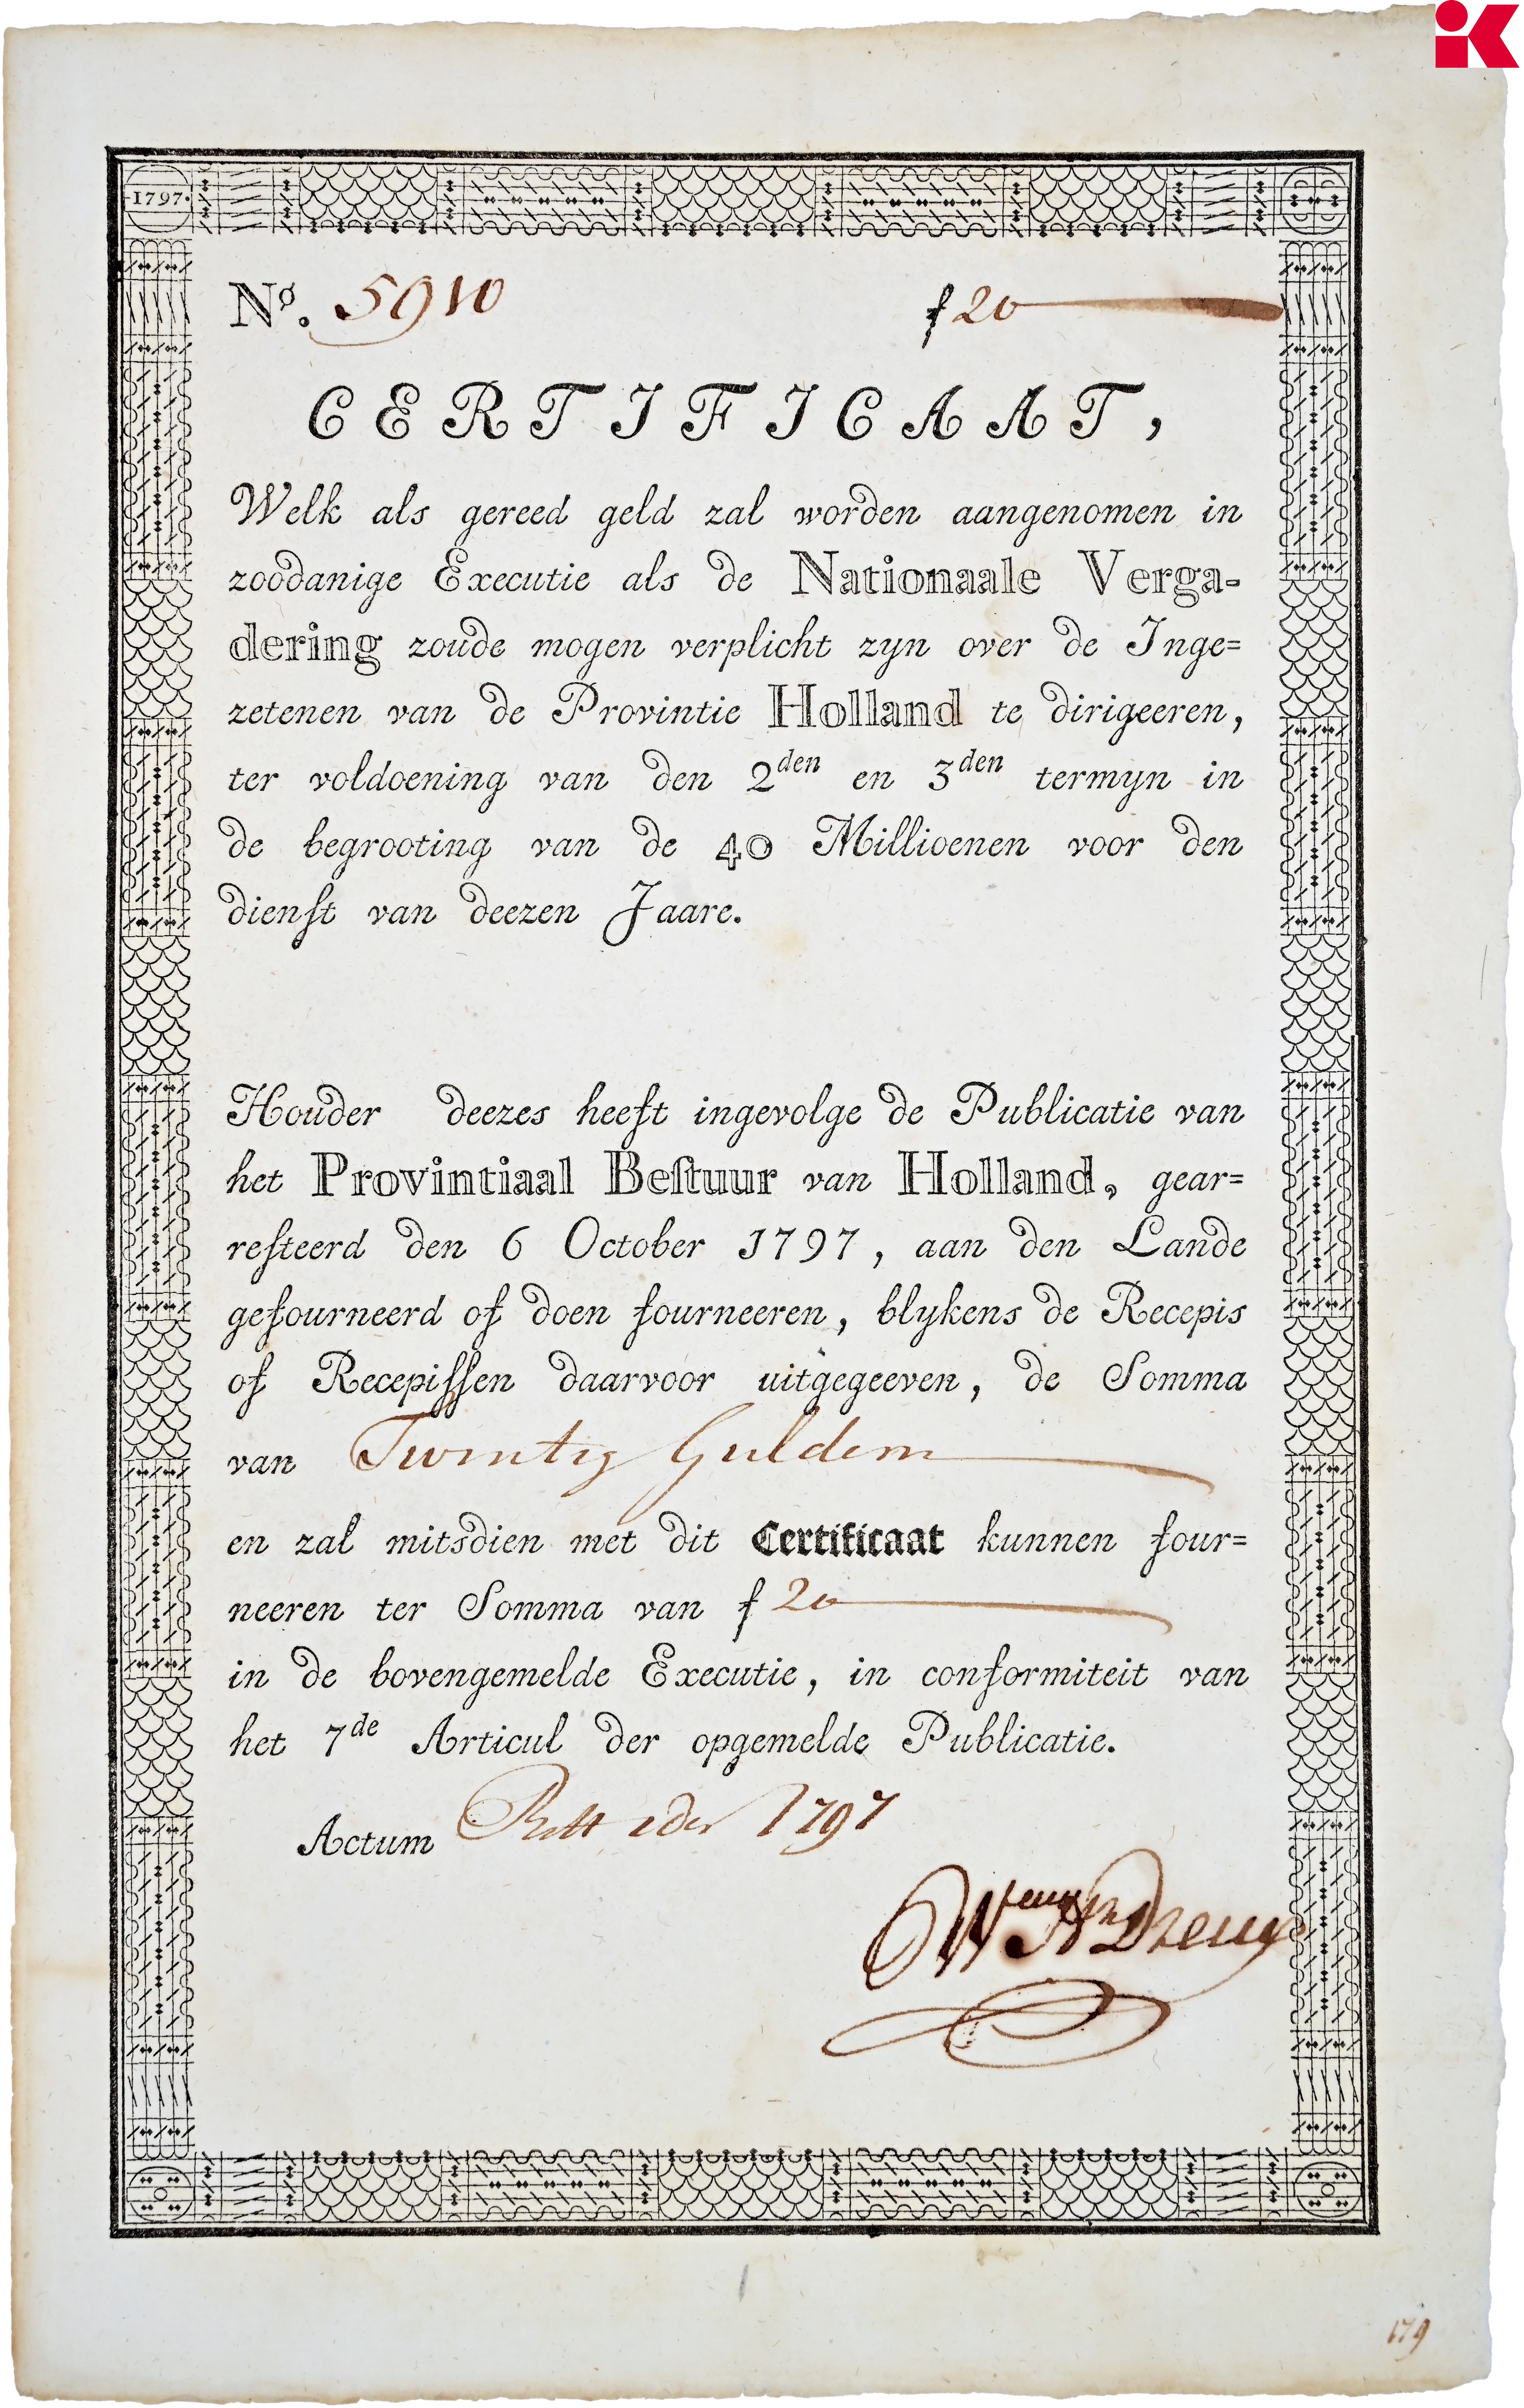 1797.
No. 5910 ƒ 20
CERTIFICAAT,
Welk als gereed geld zal worden aangenomen in
zoodanige Executie als de Nationaale Verga=
dering zoude mogen verplicht zyn over de Inge=
zetenen van de Provintie Holland te dirigeeren,
ter voldoening van den 2den en 3den termyn in
de begrooting van de 40 Millioenen voor den
dienſt van deezen Jaare.
Houder deezes heeft ingevolge de Publicatie van
het Provintiaal Beſtuur van Holland, gear=
reſteerd den 6 October 1797, aan den Lande
gefourneerd of doen fourneeren, blykens de Recepis
of Recepiſſen daarvoor uitgegeeven, de Somma
van Twintig Gulden
en zal mitsdien met dit Certificaat kunnen four=
neeren ter Somma van ƒ 20
in de bovengemelde Executie, in conformiteit van
het 7de Articul der opgemelde Publicatie.
Actum 1797
179